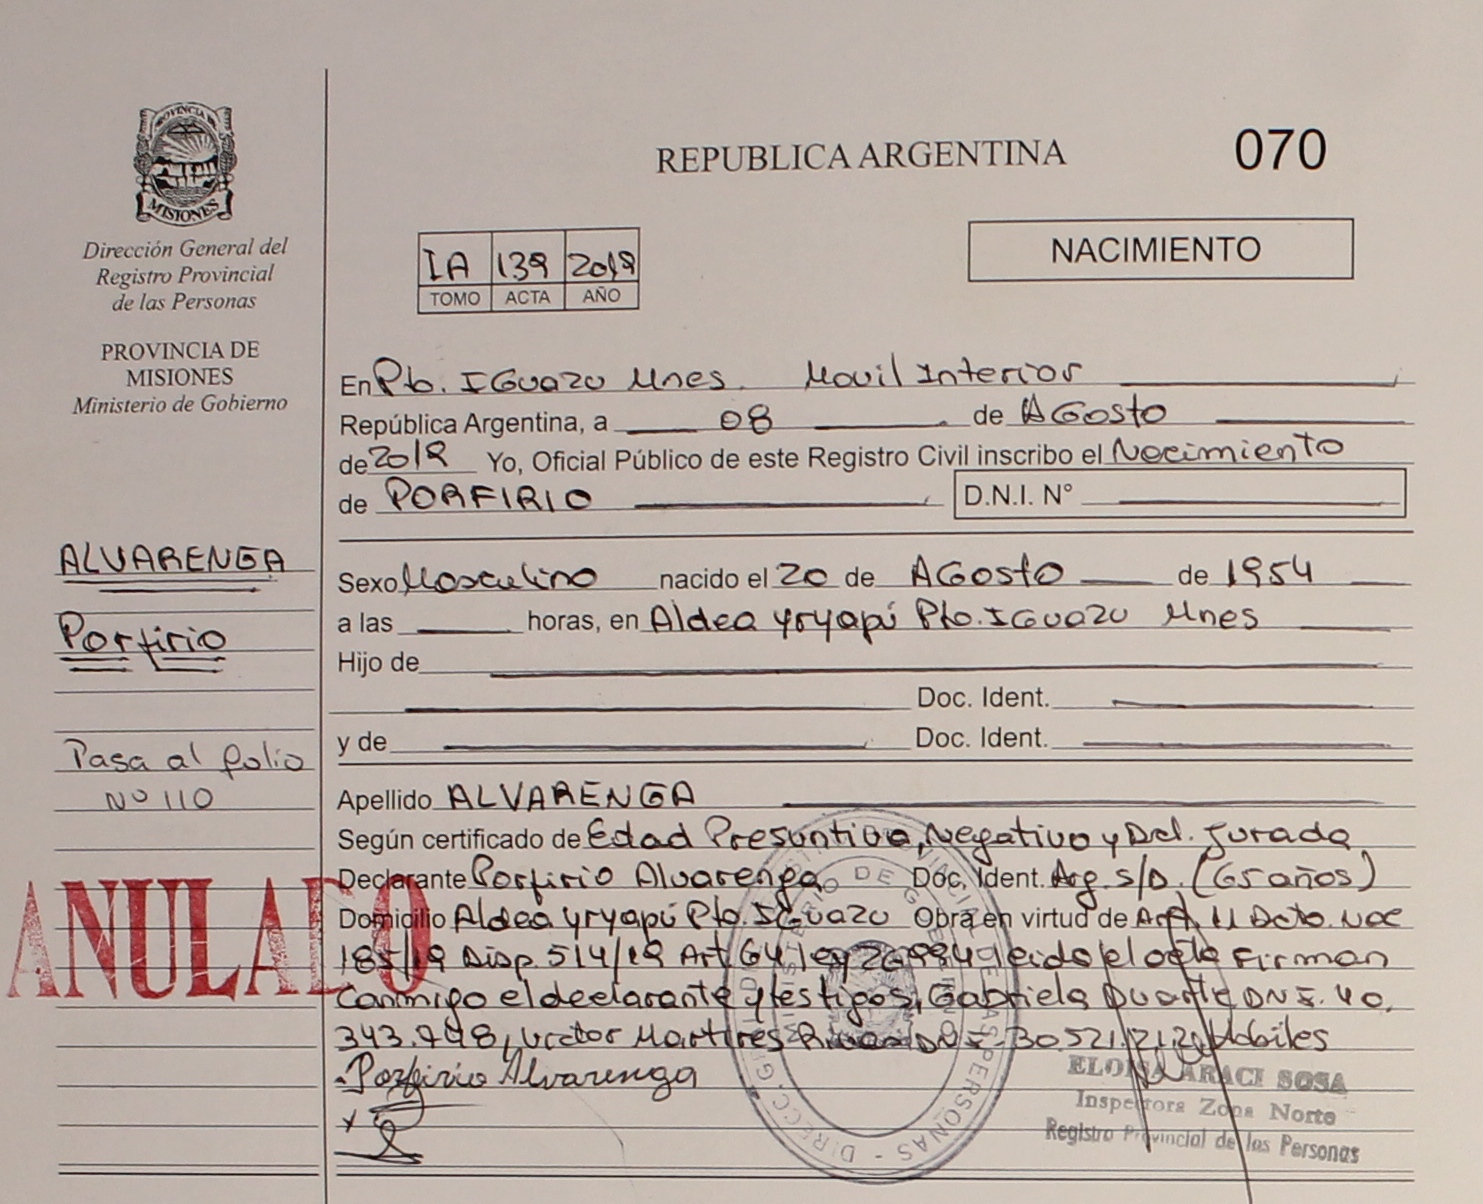 PROVINCIA DE
MISIONES
Dirección General del
Registro Provincial
de las Personas
PROVINCIA DE
MISIONES
Ministerio de Gobierno
REPUBLICA ARGENTINA
070
NACIMIENTO
IA 139 2019
TOMO ACTA AÑO
En Pto. IGUAZU Mnes. Movil Interior
República Argentina, a 08 de AGosto
de 2019 Yo, Oficial Público de este Registro Civil inscribo el Nacimiento
de PORFIRIO D.N.I. N°
ALVARENGA
Porfirio
Pasa al folio
Nº 110
ANULADO
Sexo Masculino nacido el 20 de AGosto de 1954
a las horas, en Aldea yryapú Pto. IGUAZU Mnes
Hijo de
Doc. Ident.
y de Doc. Ident.
Apellido ALVARENGA
Según certificado de Edad Presuntiva, Negativo y Dcl. Jurada
Declarante Porfirio Alvarenga Doc. Ident. Arg. S/D. (65 años)
Domicilio Aldea yryapú Pto. IGUAZU Obra en virtud de Art. 11 Dcto. Nac
185/19 Disp. 514/19 Art. 64 ley 26994 leido el acta Firman
Conmigo el declarante y testigos, Gabriela Duarte DNI. 40.
343.748, Victor Martires DNI 30.521.212 Habiles
Porfirio Alvarenga
x
ELOISA ARACI SOSA
Inspectora Zona Norte
Registro Provincial de las Personas